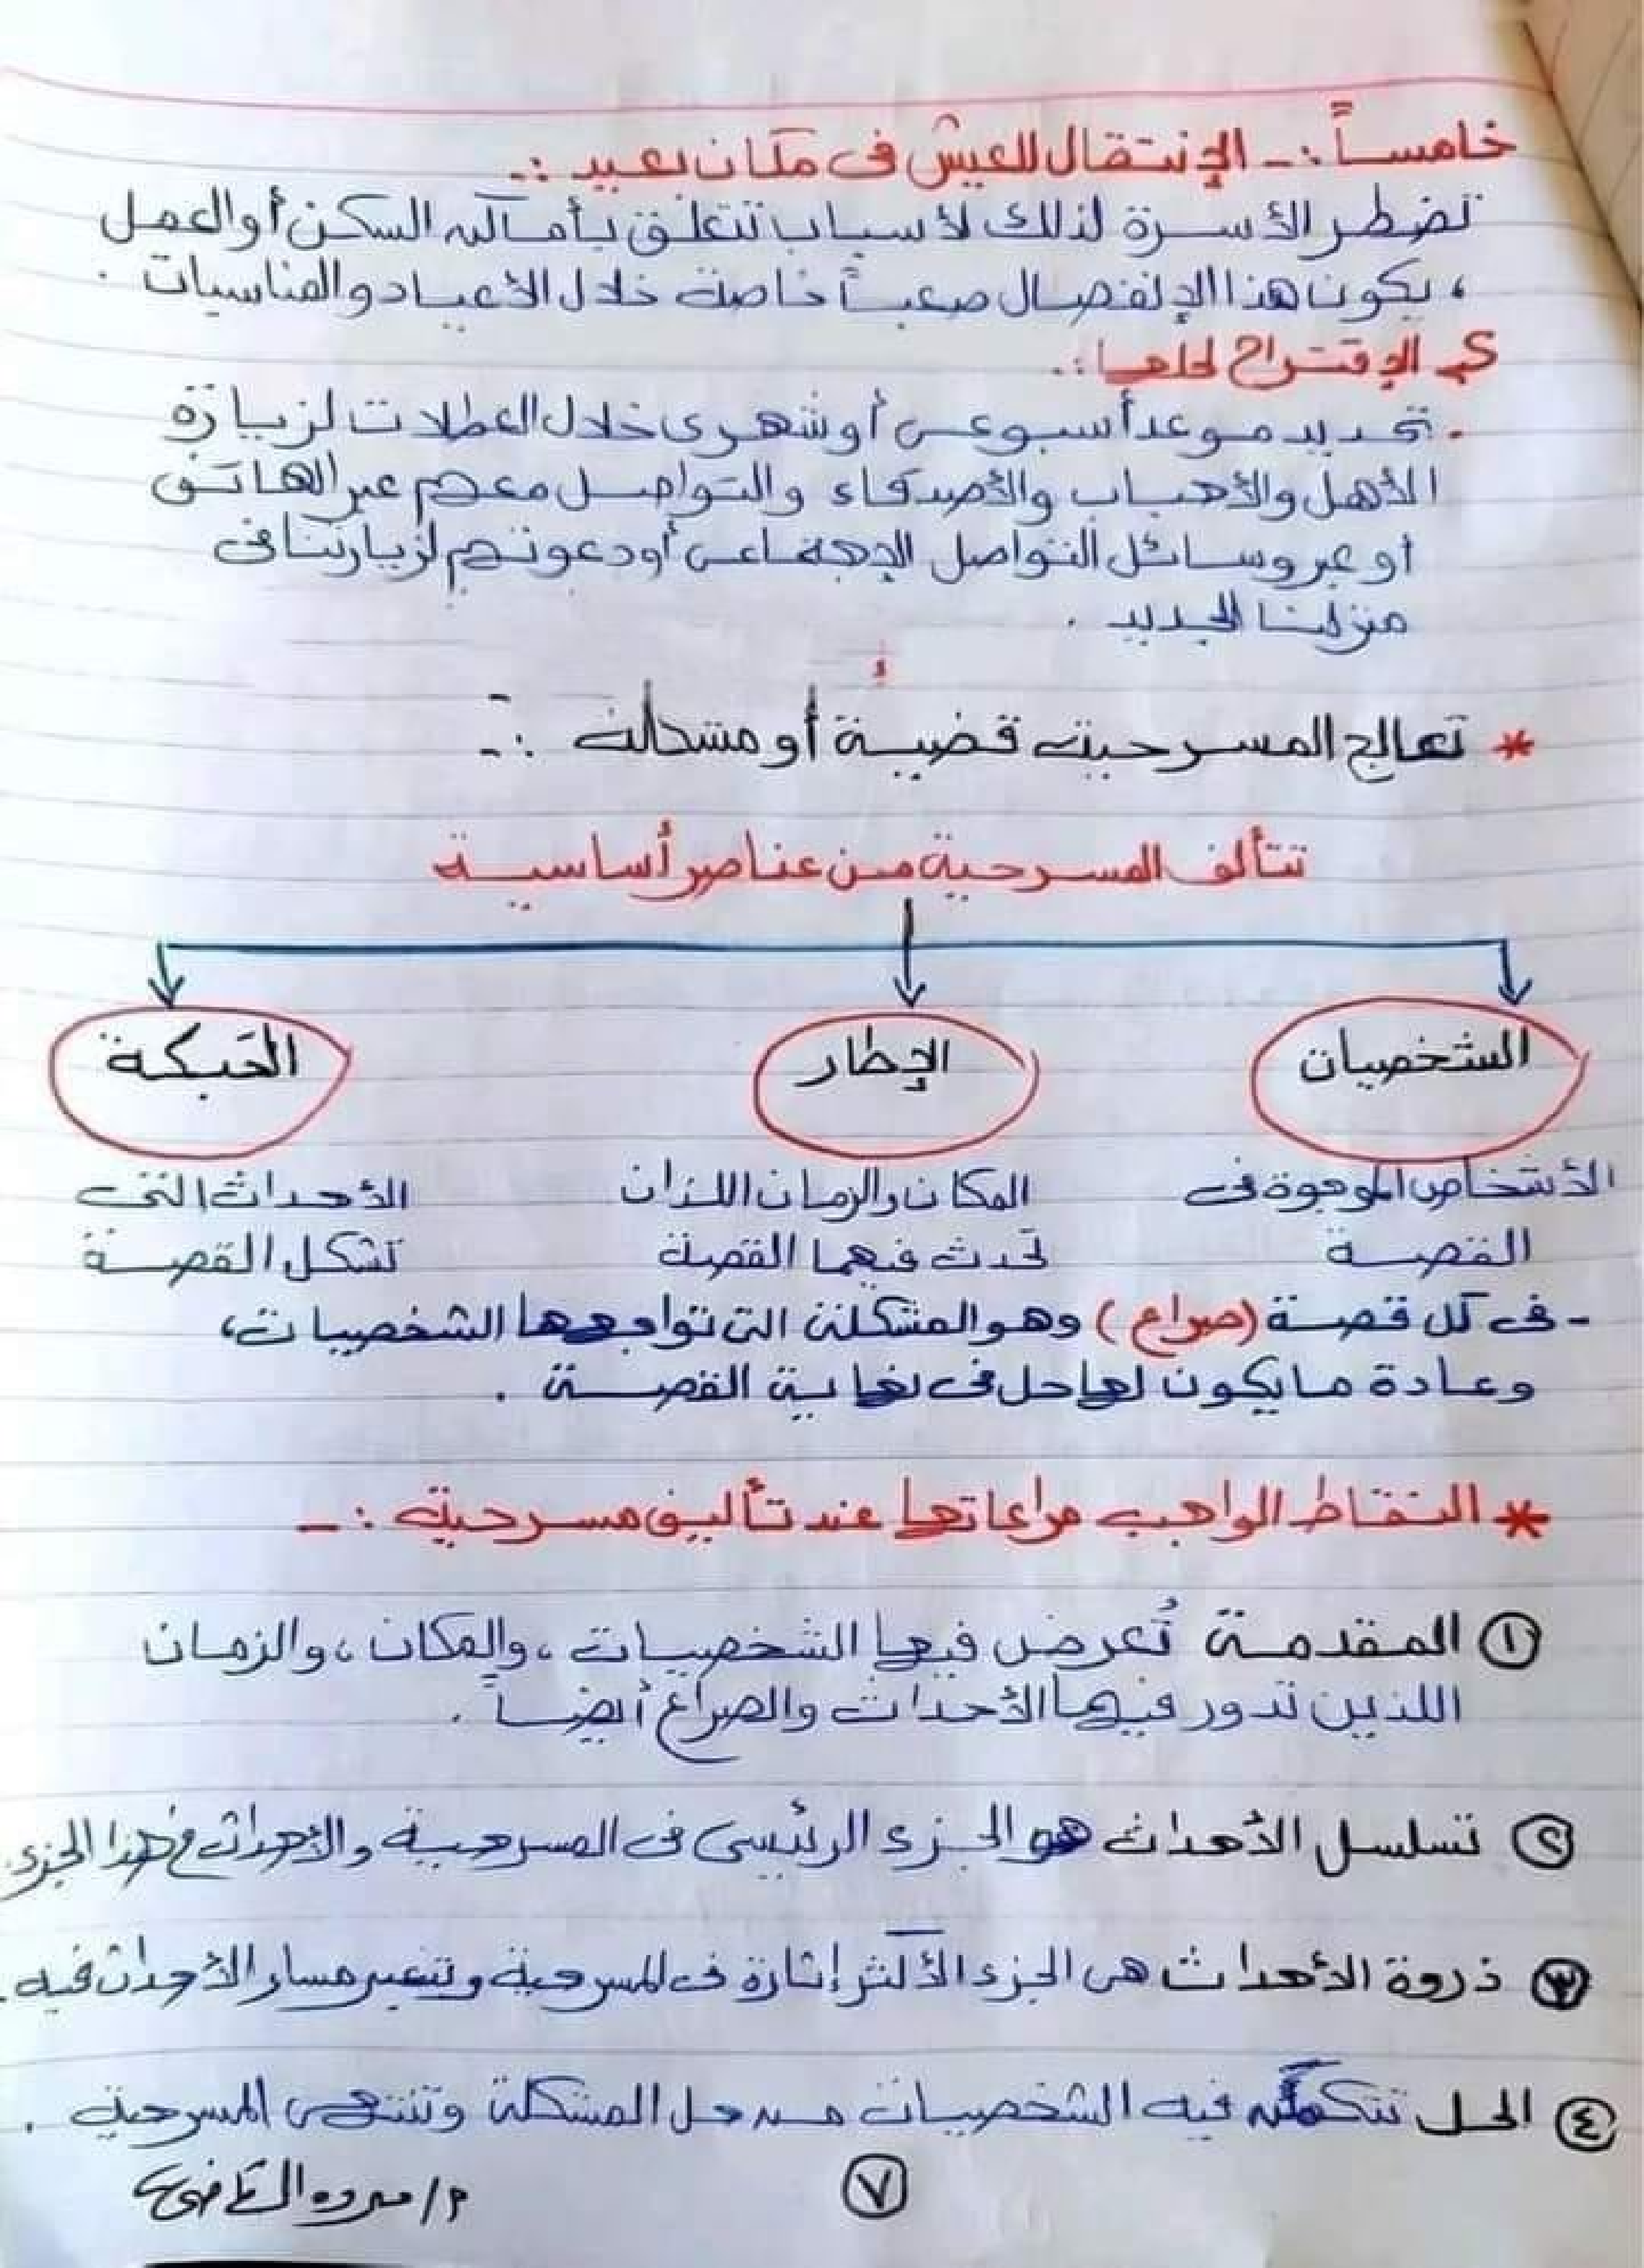 خامساً :- الإنتقال للعيش فى مكان بعيد :-
تضطر الأسرة لذلك لأسباب تتعلق بأماكن السكن أو العمل
، يكون هذا الإنفصال صعباً خاصة خلال الأعياد والمناسبات .
الإقتراح لحلها :.
. تحديد موعد أسبوعى أو شهرى خلال العطلات لزيارة
الأهل والأحباب والأصدقاء والتواصل معهم عبر الهاتف
أو عبر وسائل التواصل الإجتماعى أو دعوتهم لزيارتنا فى
منزلنا الجديد .
* تعالج المسرحية قضية أو مشكلة :-
تتألف المسرحية من عناصر أساسية
الشخصيات الإطار الحَبكة
الأشخاص الموجودة فى المكان والزمان اللذان الأحداث التى
القصة تحدث فيهما القصة تشكل القصة
- فى كل قصة (صراع) وهو المشكلة التى تواجهها الشخصيات،
وعادة ما يكون لها حل فى نهاية القصة .
* النقاط الواجب مراعاتها عند تأليف مسرحية :-
١ المقدمة تُعرض فيها الشخصيات ، والمكان ، والزمان
اللذين تدور فيهما الأحداث والصراع أيضاً .
٢ تسلسل الأحداث هو الجزء الرئيسى فى المسرحية والأحداث فى هذا الجزء
٣ ذروة الأحداث هى الجزء الأكثر إثارة فى المسرحية وتتغير مسار الأحداث فيه .
٤ الحل تتمكن فيه الشخصيات من حل المشكلة وتنتهى المسرحية .
٧
م/ مروه القاضى